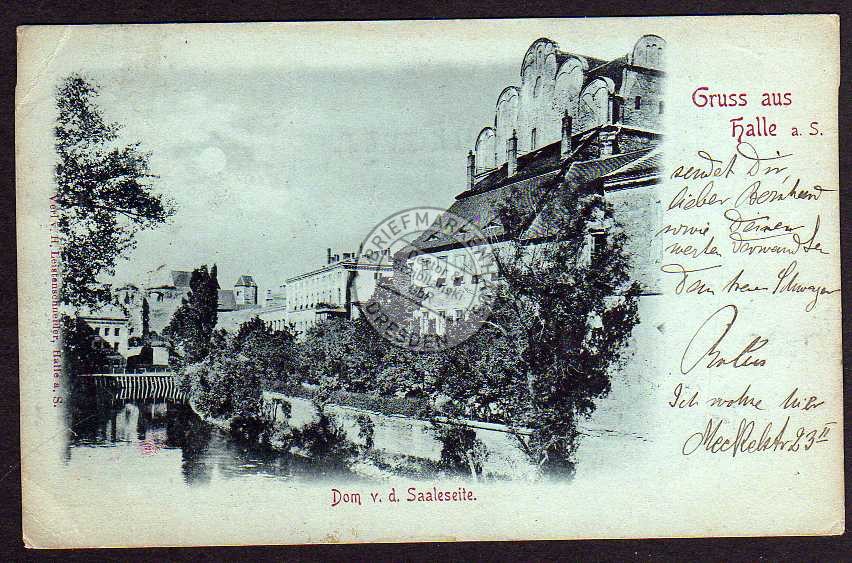 Gruss aus
Halle a. S.
sendet Dir,
lieber Bernhard
sowie Deinen
werten Verwandten
Dein treuer Schwager
Ich wohne hier
Meckelstr 23 II
Verl. v. H.
Halle a. S.
BRIEFMARKENHAUS
DRESDEN
Dom v. d. Saaleseite.